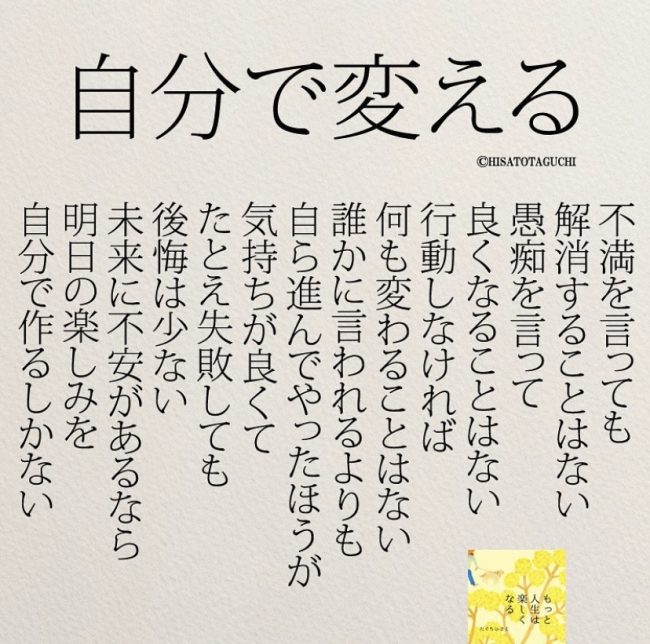 自分で変える
©HISATOTAGUCHI
不満を言っても
解消することはない
愚痴を言って
良くなることはない
行動しなければ
何も変わることはない
誰かに言われるよりも
自ら進んでやったほうが
気持ちが良くて
たとえ失敗しても
後悔は少ない
未来に不安があるなら
明日の楽しみを
自分で作るしかない
もっと
人生は
楽しく
なる
たぐちひさと